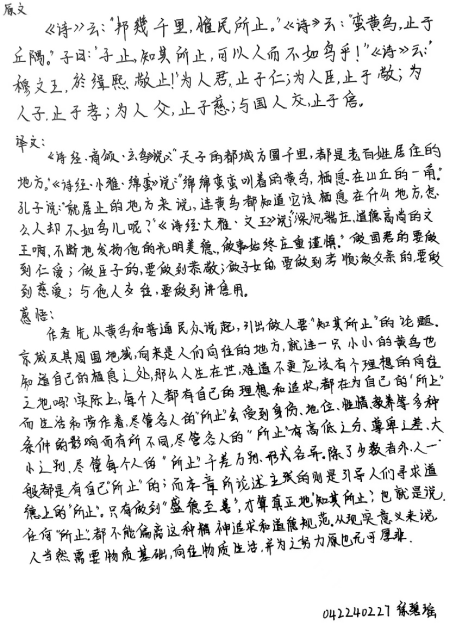 原文
《诗》云:"邦畿千里,惟民所止。"《诗》云:"蛮黄鸟,止于
丘隅。"子曰:'于止,知其所止,可以人而不如鸟乎!"《诗》云:'
穆文王,於缉熙敬止!'为人君,止于仁;为人臣,止于敬;为
人子,止于孝;为人父,止于慈;与国人交,止于信。
译文:
《诗经·商颂·玄鸟》说:"天子的都城方圆千里,都是老百姓居住的
地方。"《诗经·小雅·绵蛮》说:"绵绵蛮蛮叫着的黄鸟,栖息在山丘的一角。"
孔子说:"就居止的地方来说,连黄鸟都知道它该栖息在什么地方,怎
么人却不如鸟儿呢?"《诗经·大雅·文王》说:"深沉端庄,道德高尚的文
王啊,不断地发扬他的光明美德,做事始终庄重谨慎。"做国君的要做
到仁爱;做臣子的,要做到恭敬;做子女的,要做到孝顺;做父亲的,要做
到慈爱;与他人交往,要做到讲信用。
感悟:
作者先从黄鸟和普通民众说起,引出做人要"知其所止"的话题。
京城及其周围地域,向来是人们向往的地方,就连一只小小的黄鸟也
知道自己的栖息之处,那么人生在世,难道不更应该有个理想的向往
之地吗?实际上,每个人都有自己的理想和追求,都在为自己的"所止"
而生活和劳作着,尽管各人的"所止"会受到身份、地位、性情、教养等多种
条件的影响而有所不同,尽管各人的"所止"有高低之分、尊卑之差、大
小之别,尽管每个人的"所止"千差万别、形式各异。除了少数者外,人一
般都是有自己"所止"的;而本章所论述主张的则是引导人们寻求道
德上的"所止"。只有做到"盛德至善",才算真正地"知其所止";也就是说,
任何"所止"都不能偏离这种精神追求和道德规范。从现实意义来说,
人当然需要物质基础,向往物质生活,并为之努力原也无可厚非。
042240227 徐碧瑶